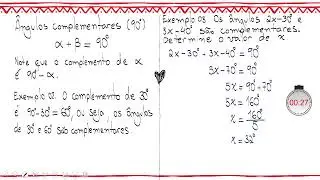 Ângulos complementares (90°)
α + β = 90°
Note que o complemento de α
é 90° - α.
Exemplo 02. O complemento de 30°
é 90° - 30° = 60°, ou seja, os ângulos
de 30° e 60° são complementares.
Exemplo 03. Os ângulos 2x - 30° e
3x - 40° são complementares.
Determine o valor de x
2x - 30° + 3x - 40° = 90°
5x - 70° = 90°
5x = 90° + 70°
5x = 160°
x = 160°
5
x = 32°
00:27